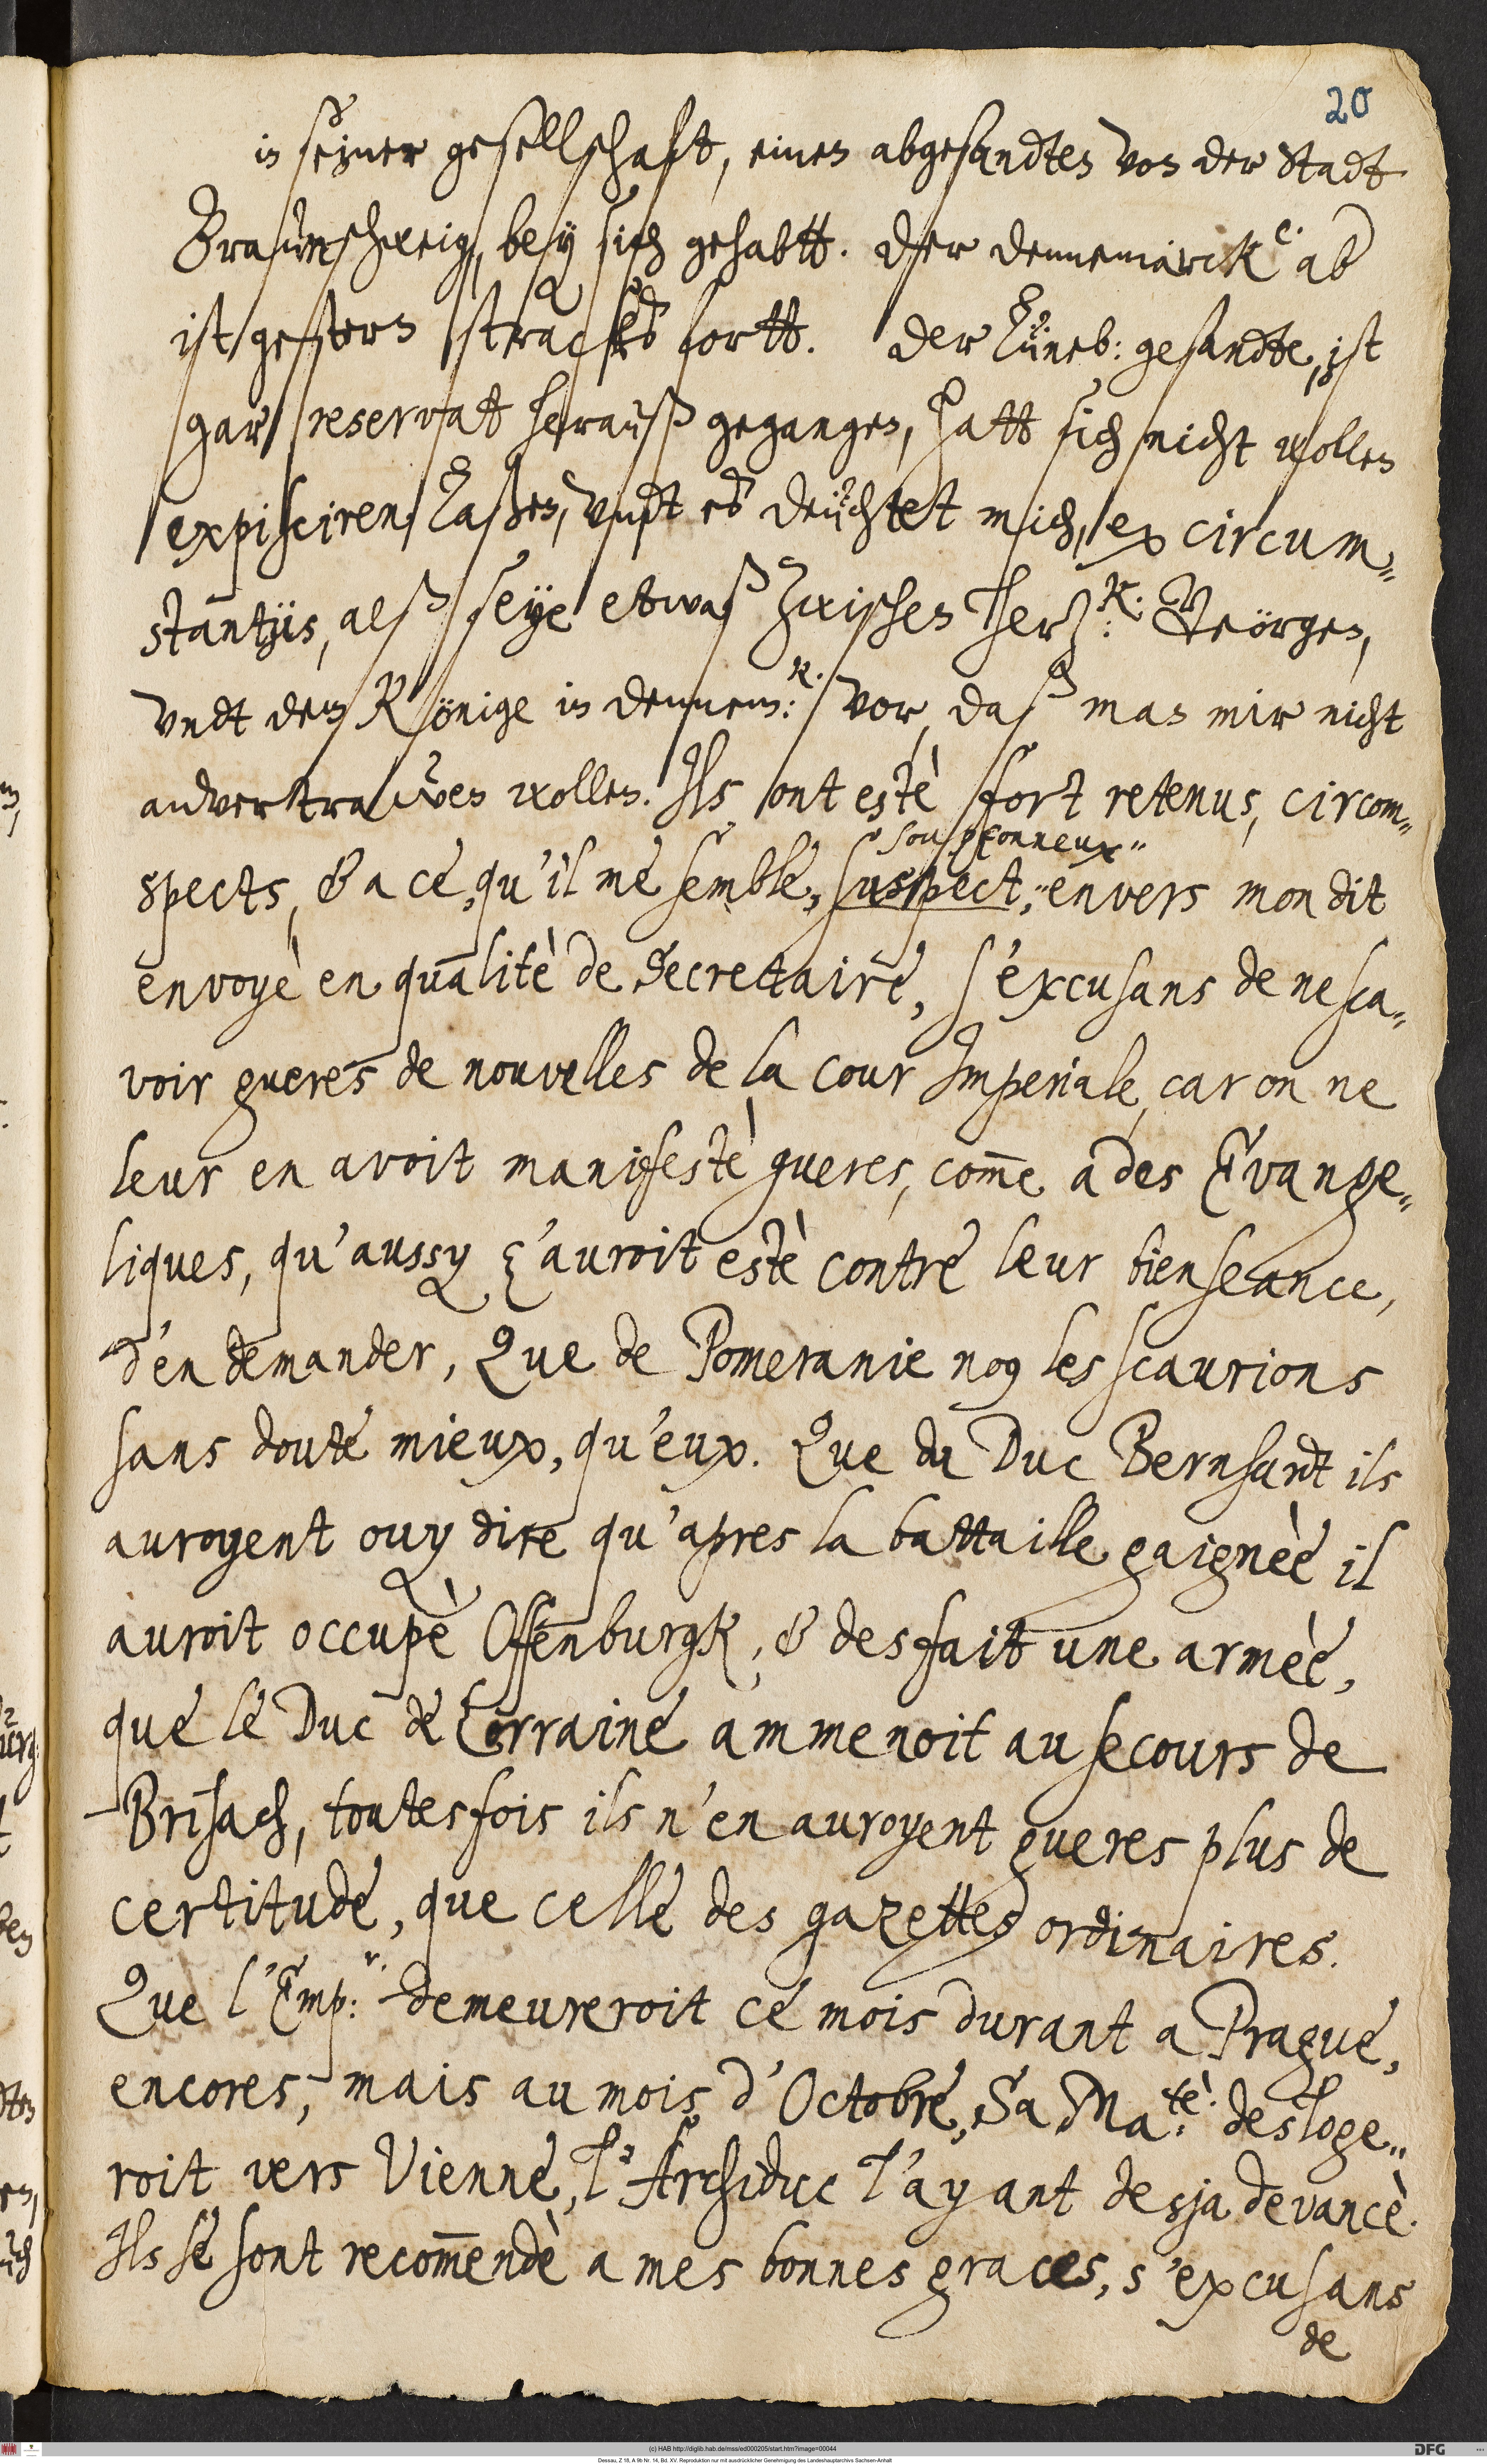 20
in seiner gesellschaft, einen abgesandten von der Stadt
Braunschweig, bey sich gehabtt. Der Dennemarck e. ab
ist gestern stracks fortt. Der Lüneb: gesandte, ist
gar reservat herauß gegangen, hatt sich nicht wollen
expisciren laßen, undt es deüchtet mich, ex circum„
stantijs, alß seye etwaß zwischen Herz: k. Geörgen,
undt dem Könige in Dennem: k. vor, daß man mir nicht
anvertrawen wollen. Ils ont estè fort retenus, circom„
soupçonneux„
spects, & a ce, qu'il me semble, suspect,„ envers mon dit
envoyè en qualitè de Secrettaire, s'excusans de ne sca„
voir gueres de nouvelles de la cour Imperiale, car on ne
leur en avoit manifestè gueres, com̄e a des Evange„
liques, qu'aussy ç'auroit estè contre leur bienseance,
d'en demander, Que de Pomeranie no9 les scaurions
sans doute mieux, qu'eux. Que du Duc Bernhardt ils
auroyent ouy dire qu'apres la battaille gaignèe il
auroit occupè Offenburgk, & desfait une armèe,
que le Duc de Lorraine ammenoit au secours de
Brisach, toutesfois ils n'en auroyent gueres plus de
certitude, que celle des gazettes ordinaires.
Que l'Emp: r. demeureroit ce mois durant a Prague,
encores, mais au mois d'Octobre, Sa Ma: tè. desloge„
roit vers Vienne, l'Archiduc l'ayant desja devancè.
Ils se sont recom̄endè a mes bonnes graces, s'excusans
de
(c) HAB http://diglib.hab.de/mss/ed000205/start.htm?image=00044
DFG
Dessau, Z 18, A 9b Nr. 14, Bd. XV. Reproduktion nur mit ausdrücklicher Genehmigung des Landeshauptarchivs Sachsen-Anhalt